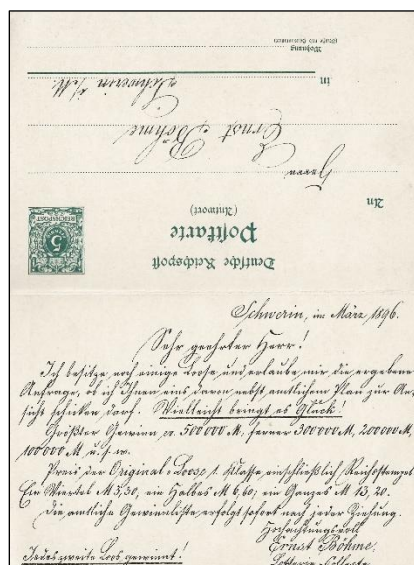 Deutsche Reichspost
Postkarte
(Antwort)
An
Herrn
Ernst Böhme
in
Schwerin i/M.
Wohnung
(Straße und Hausnummer)
REICHSPOST
5
Schwerin, im März 1896.
Sehr geehrter Herr!
Ich besitze noch einige Loose und erlaube mir die ergebene
Anfrage, ob ich Ihnen eins davon nebst amtlichem Plan zur An-
sicht schicken darf. Vielleicht bringt es Glück!
Größter Gewinn ev. 500 000 M, ferner 300 000 M, 200 000 M,
100 000 M u.s.w.
Preis der Original-Loose 1. Klasse einschließlich Reichsstempel
Ein Viertel M 3,30, ein Halbes M 6,60, ein Ganzes M 13,20.
Die amtliche Gewinnliste erfolgt sofort nach jeder Ziehung.
Hochachtungsvoll
Ernst Böhme.
Jedes zweite Loos gewinnt!
Lotterie-Collecte